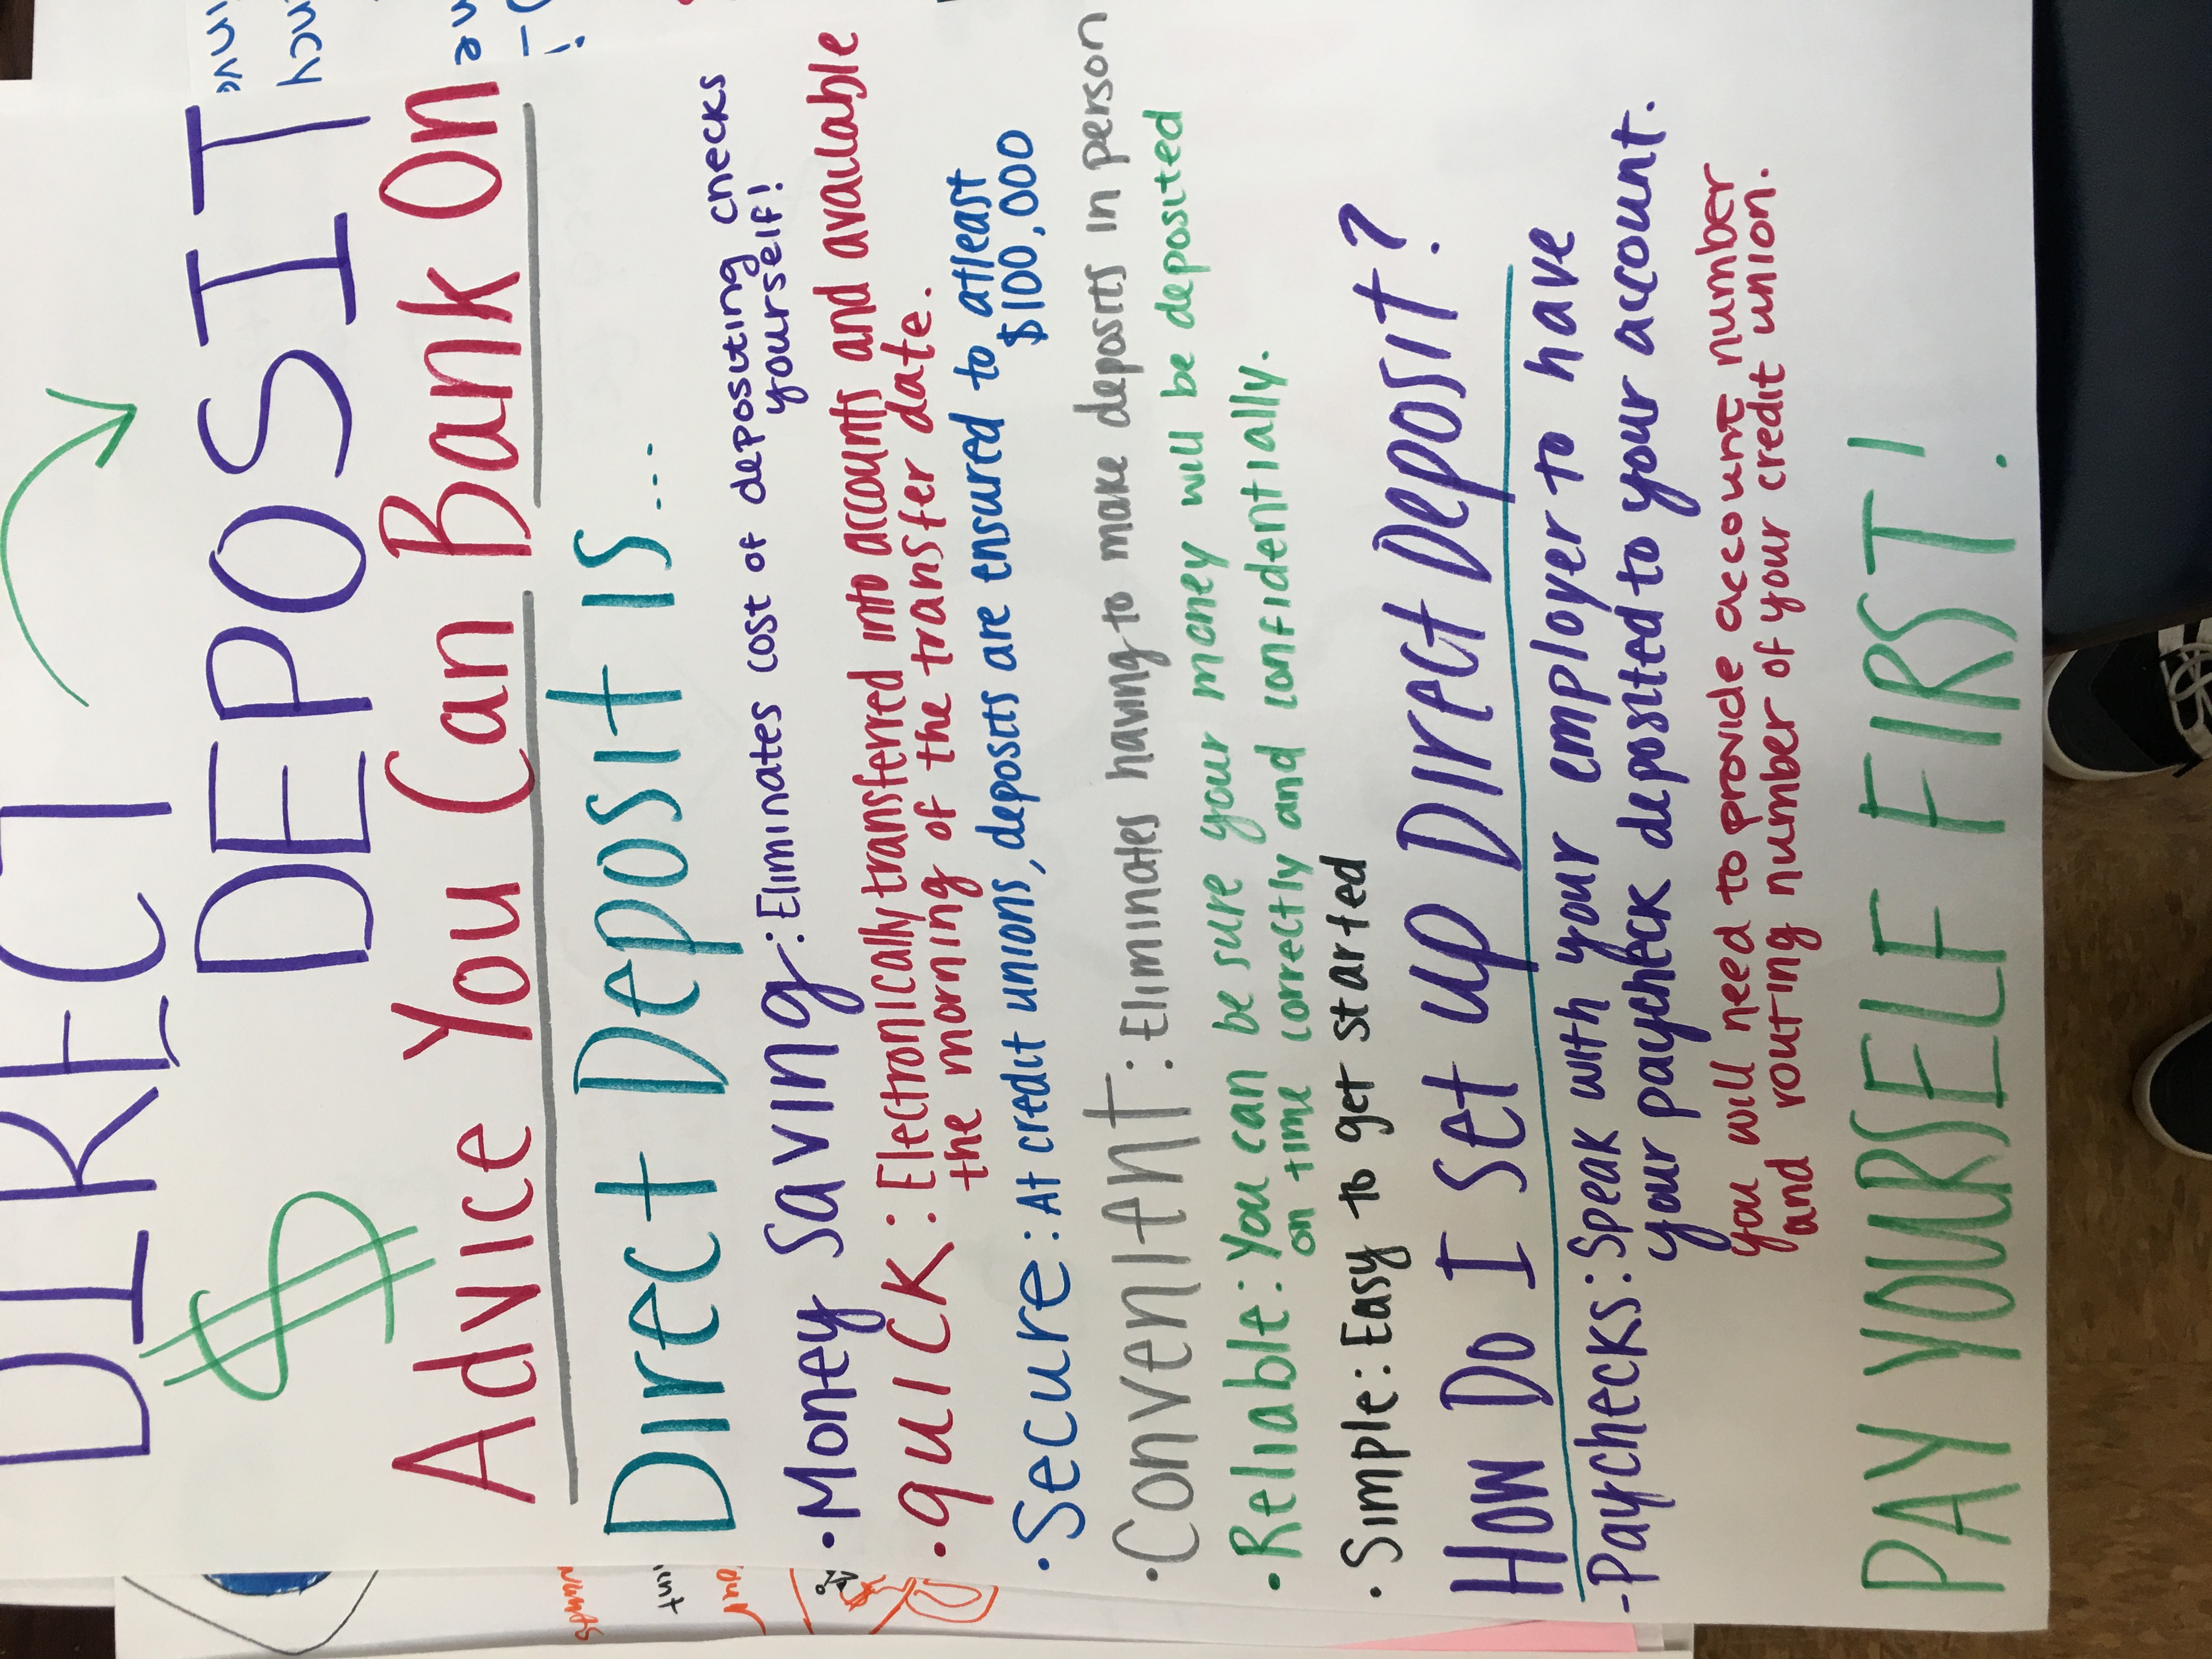 DIRECT
DEPOSIT
$
Advice You Can Bank On
Direct Deposit is...
• Money saving: Eliminates cost of depositing checks
yourself!
• quick: Electronically transferred into accounts and available
the morning of the transfer date.
• Secure: At credit unions, deposits are ensured to atleast
$100,000
• Convenitent: Eliminates having to make deposits in person
• Reliable: You can be sure your money will be deposited
on time correctly and confidentially.
• Simple: Easy to get started
How Do I set up Direct Deposit?
- Paychecks: Speak with your employer to have
your paycheck deposited to your account.
you will need to provide account number
and routing number of your credit union.
PAY YOURSELF FIRST!